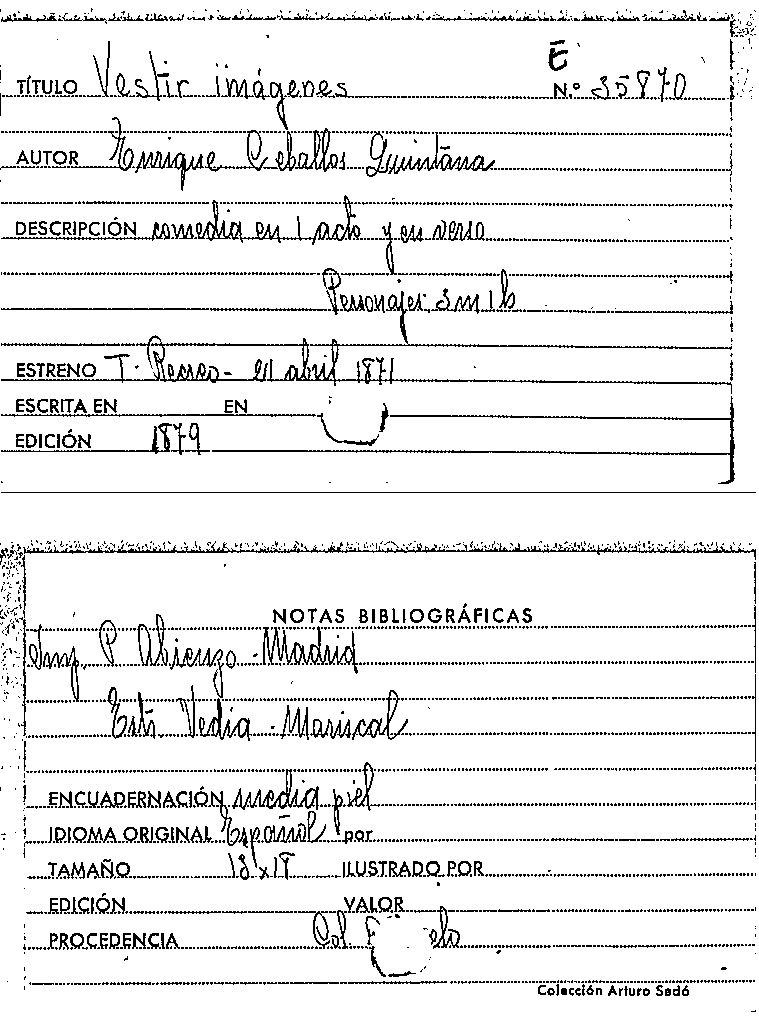 E
TÍTULO Vestir imágenes N.º 35870
AUTOR Enrique Ceballos Quintana
DESCRIPCIÓN comedia en 1 acto y en verso
Personajes 3m 1h
ESTRENO T. Recreo - 21 abril 1871
ESCRITA EN EN
EDICIÓN 1879
NOTAS BIBLIOGRÁFICAS
Imp. P. Abienzo - Madrid
Estr. Vedia - Mariscal
ENCUADERNACIÓN media piel
IDIOMA ORIGINAL Español por
TAMAÑO ILUSTRADO POR
EDICIÓN VALOR
PROCEDENCIA Col.
Colección Arturo Sedó